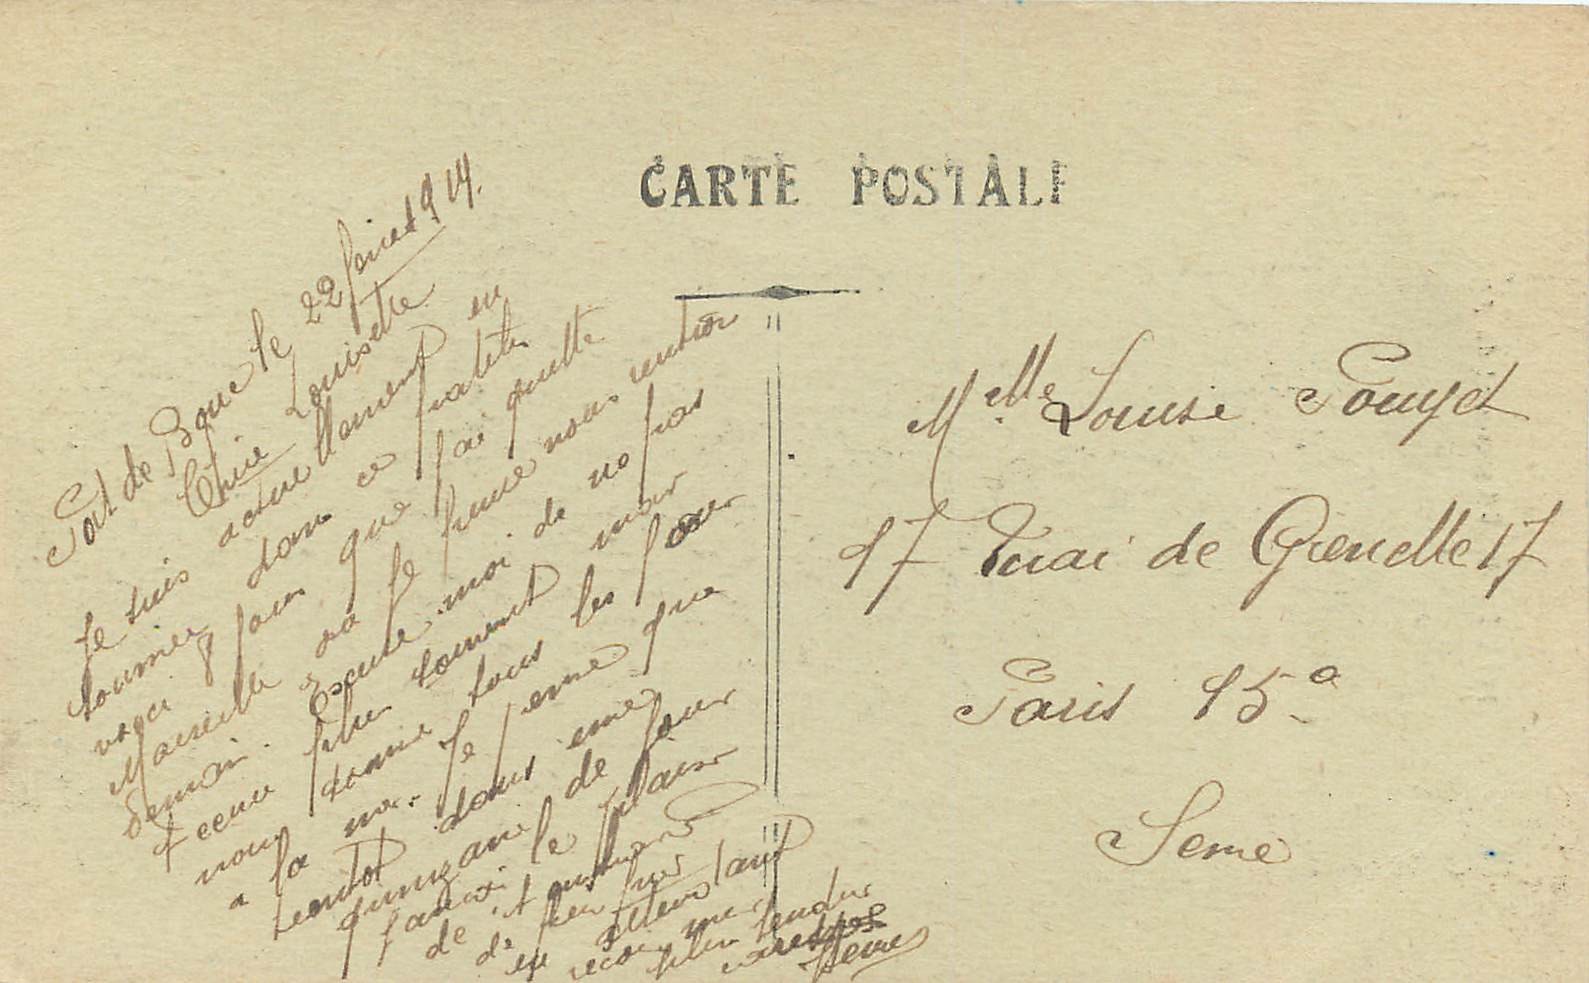 CARTE POSTALE
Port de Bouc le 22 février 1914.
Chère Louisette
Je suis actuellement en
tournée dans ce
voici 8 jours que j'ai quitté
Marseille et je pense nous rentrer
demain. Excuse moi de ne pas
t'écrire plus souvent mais
nous sommes tous les jours
à la mer. Je pense que
bientôt dans une
quinzaine de jours
j'aurai le plaisir
de t'
de
en attendant
reçois mes
plus tendres
caresses
Mlle Louise Pouyet
17 Quai de Grenelle 17
Paris 15e
Seine